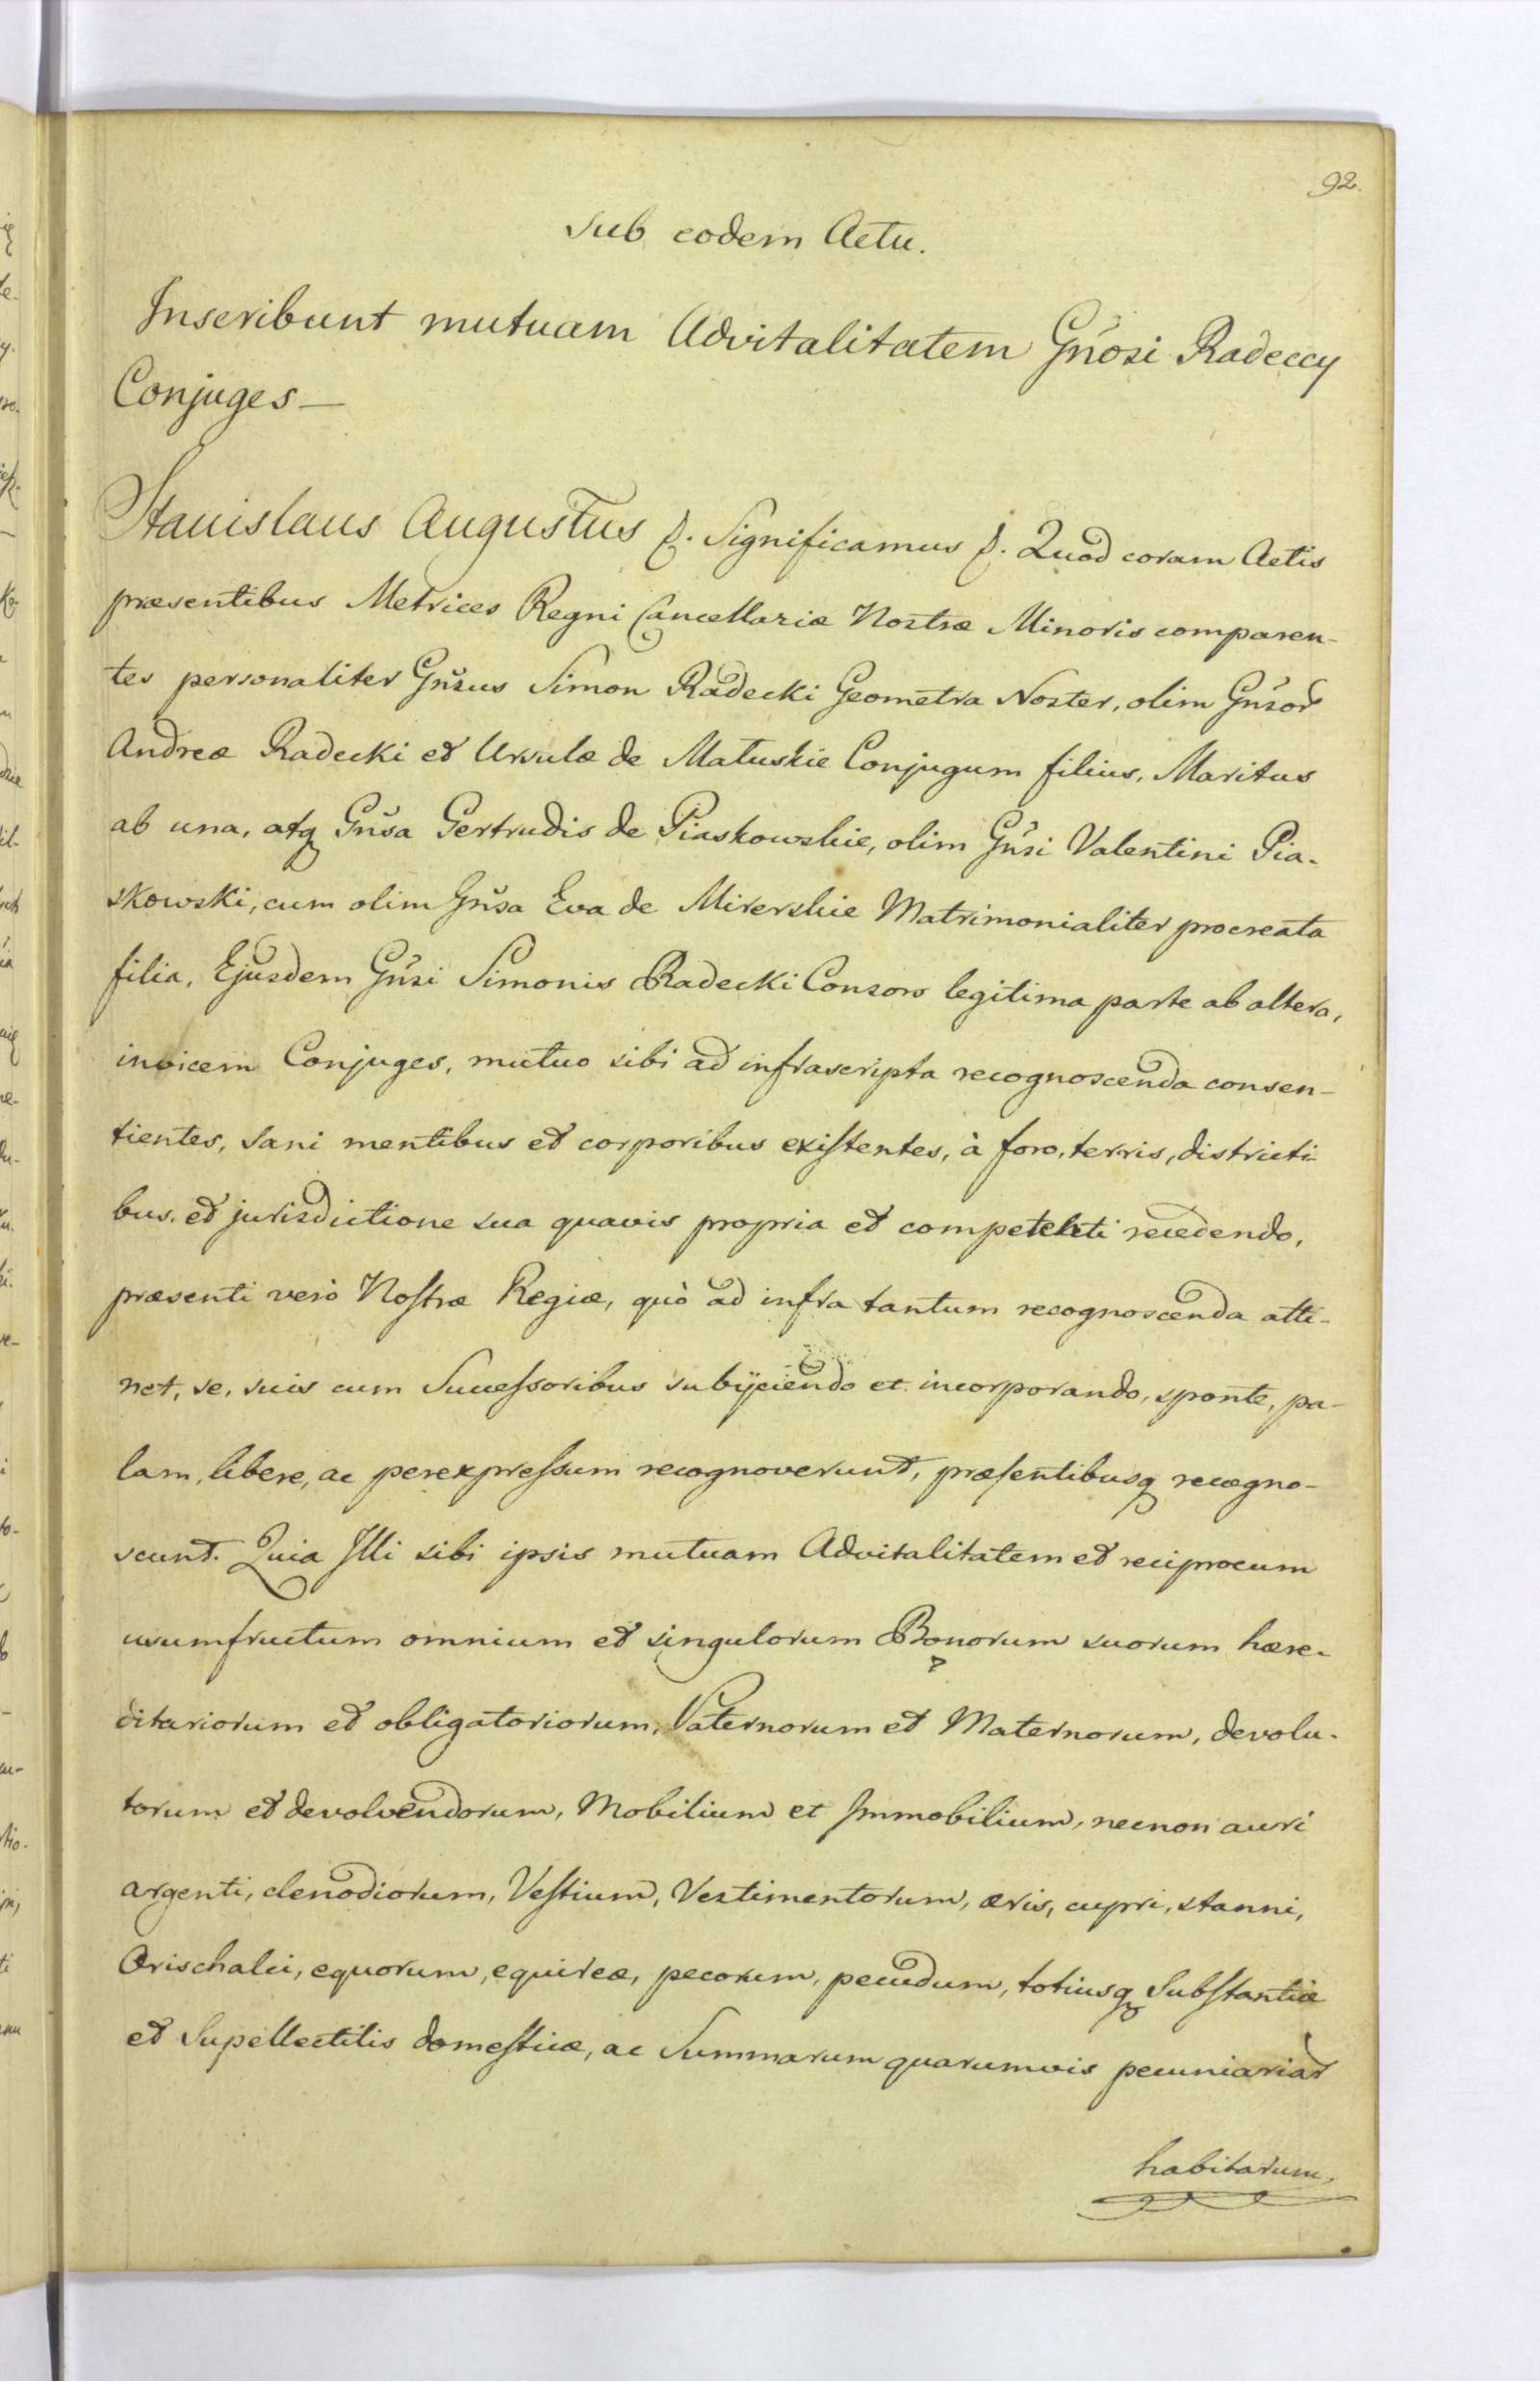 92.
Sub eodem Actu.
Inscribunt mutuam Advitalitatem Gnosi Radeccy
Conjuges—
Stanislaus Augustus &. Significamus &. Quod coram Actis
præsentibus Metrices Regni Cancellariæ Nostræ Minoris comparen-
tes personaliter Gnsus Simon Radecki Geometra Noster, olim Gnsor
Andreæ Radecki et Ursulæ de Matuskie Conjugum filius, Maritus
ab una, atq Gnsa Gertrudis de Piaskowskie, olim Gnsi Valentini Pia-
skowski, cum olim Gnsa Eva de Mirerskie Matrimonialiter procreata
filia, Ejusdem Gnsi Simonis Radecki Consors legitima parte ab altera,
invicem Conjuges, mutuo sibi ad infrascripta recognoscenda consen-
tientes, Sani mentibus et corporibus existentes, à foro, terris, districti-
bus, et jurisdictione sua quavis propria et competenti recedendo,
præsenti verò Nostræ Regiæ, quò ad infra tantum recognoscenda atti-
net, se, suis cum Successoribus subijciendo et incorporando, sponte, pa-
lam, libere, ac per expressum recognoverunt, præsentibusq recogno-
scunt. Quia Illi sibi ipsis mutuam Advitalitatem et reciprocum
usumfructum omnium et singulorum Bonorum suorum hære-
ditariorum et obligatoriorum, Paternorum et Maternorum, devolu-
torum et devolvendorum, Mobilium et Immobilium, necnon auri
argenti, clenodiorum, Vestium, Vestimentorum, æris, cupri, stanni,
Orischalci, equorum, equireæ, pecorum, pecudum, totiusq Substantiæ
et Supellectilis domesticæ, ac Summarum quarumvis pecuniariar
habitarum,